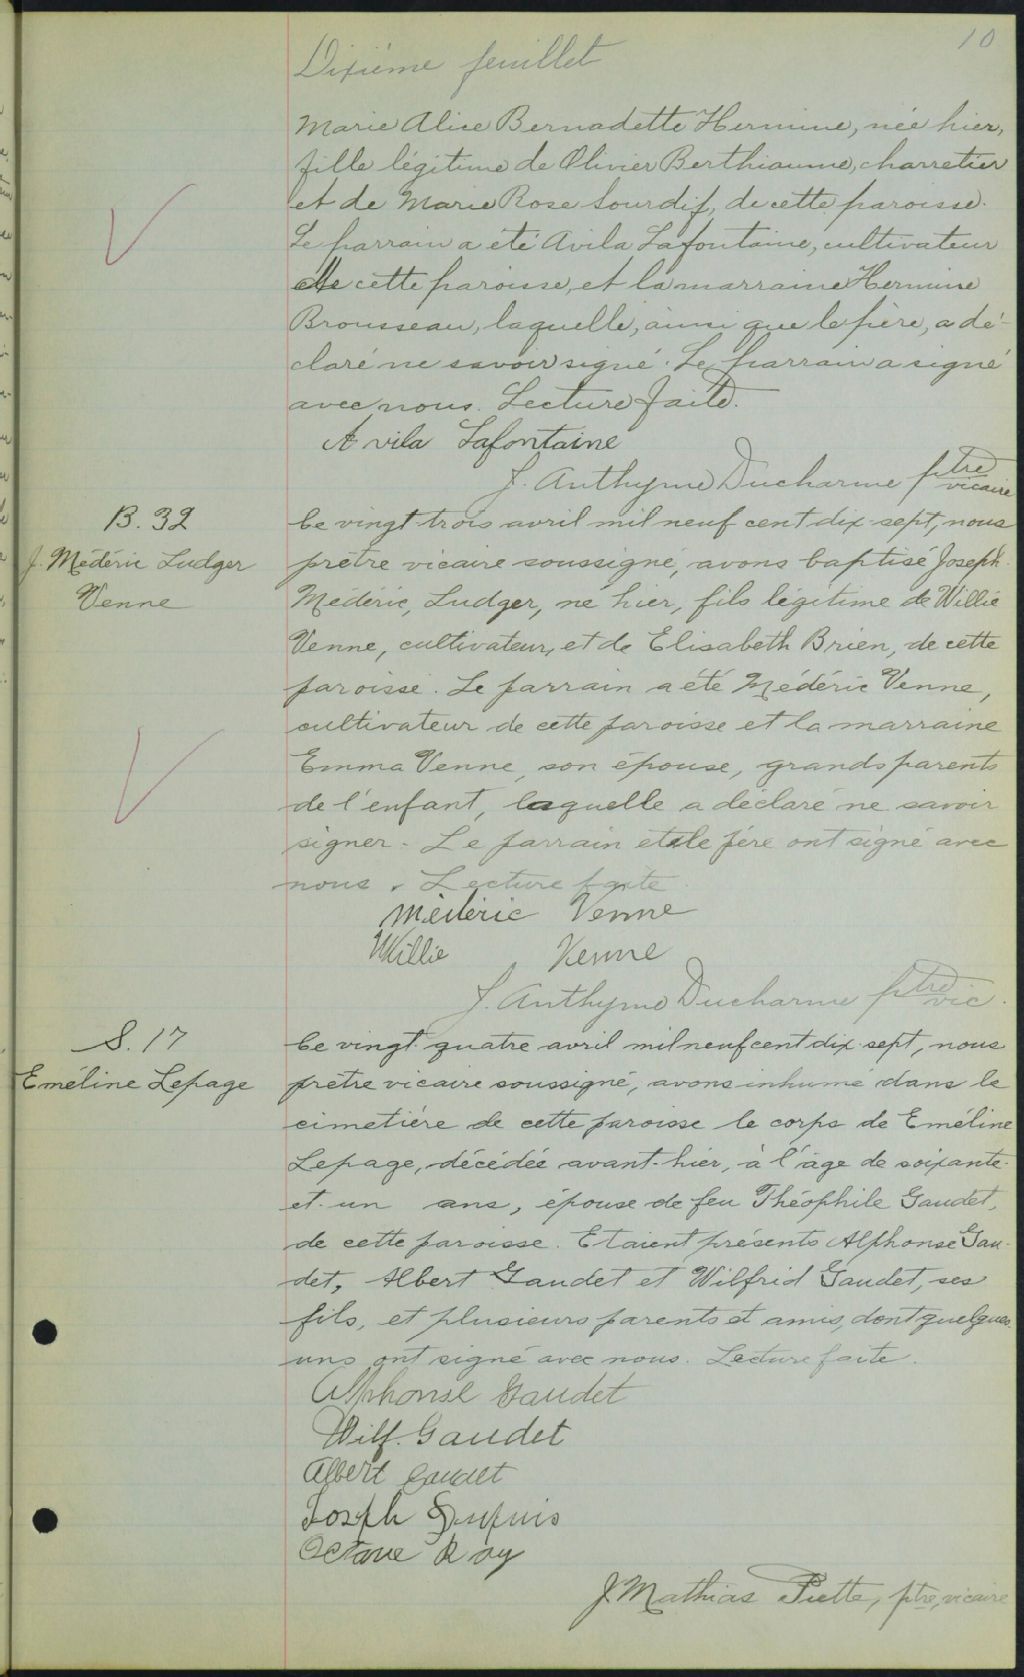 10
Dixième feuillet
Marie Alice Bernadette Hermine, née hier,
fille légitime de Olivier Berthiaume, charretier
et de Marie Rose Lourdif, de cette paroisse.
Le parrain a été Avila Lafontaine, cultivateur
de cette paroisse, et la marraine Hermine
Brousseau, laquelle, ainsi que le père, a dé-
claré ne savoir signé. Le parrain a signé
avec nous. Lecture faite.
Avila Lafontaine
J. Anthyme Ducharme ptre vicaire
B. 32
J. Médéric Ludger
Venne
Le vingt trois avril mil neuf cent dix-sept, nous
prêtre vicaire soussigné, avons baptisé Joseph
Médéric, Ludger, né hier, fils légitime de Willie
Venne, cultivateur, et de Elisabeth Brien, de cette
paroisse. Le parrain a été Médéric Venne,
cultivateur de cette paroisse et la marraine
Emma Venne, son épouse, grands parents
de l'enfant, laquelle a déclaré ne savoir
signer. Le parrain et le père ont signé avec
nous. Lecture faite.
Médéric Venne
Willie Venne
J. Anthyme Ducharme ptre vic.
S. 17
Eméline Lepage
Le vingt-quatre avril mil neuf cent dix-sept, nous
prêtre vicaire soussigné, avons inhumé dans le
cimetière de cette paroisse le corps de Eméline
Lepage, décédée avant-hier, à l'âge de soixante-
et-un ans, épouse de feu Théophile Gaudet,
de cette paroisse. Etaient présents Alphonse Gau-
det, Albert Gaudet et Wilfrid Gaudet, ses
fils, et plusieurs parents et amis, dont quelques-
uns ont signé avec nous. Lecture faite.
Alphonse Gaudet
Wilf. Gaudet
Albert Gaudet
Joseph Dupuis
Octave Roy
J. Mathias Piette, ptre, vicaire